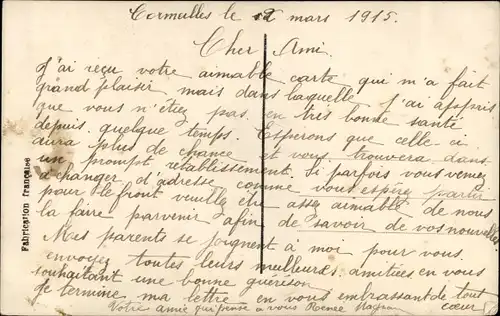 Cormeilles le 12 mars 1915.
Cher Ami
J'ai reçu votre aimable carte qui m'a fait
grand plaisir mais dans laquelle j'ai appris
que vous n'étiez pas en très bonne santé
depuis quelque temps. Esperons que celle-ci
aura plus de chance et vous trouvera dans
un prompt rétablissement. Si parfois vous veniez
à changer d'adresse comme vous espérez partir
pour le front veuillez être assez aimable de nous
la faire parvenir afin de savoir de vos nouvelles
Mes parents se joignent à moi pour vous
envoyez toutes leurs meilleures amitiées en vous
souhaitant une bonne guérison.
Je termine ma lettre en vous embrassant de tout
cœur
Votre amie qui pense à vous Renée
Fabrication française